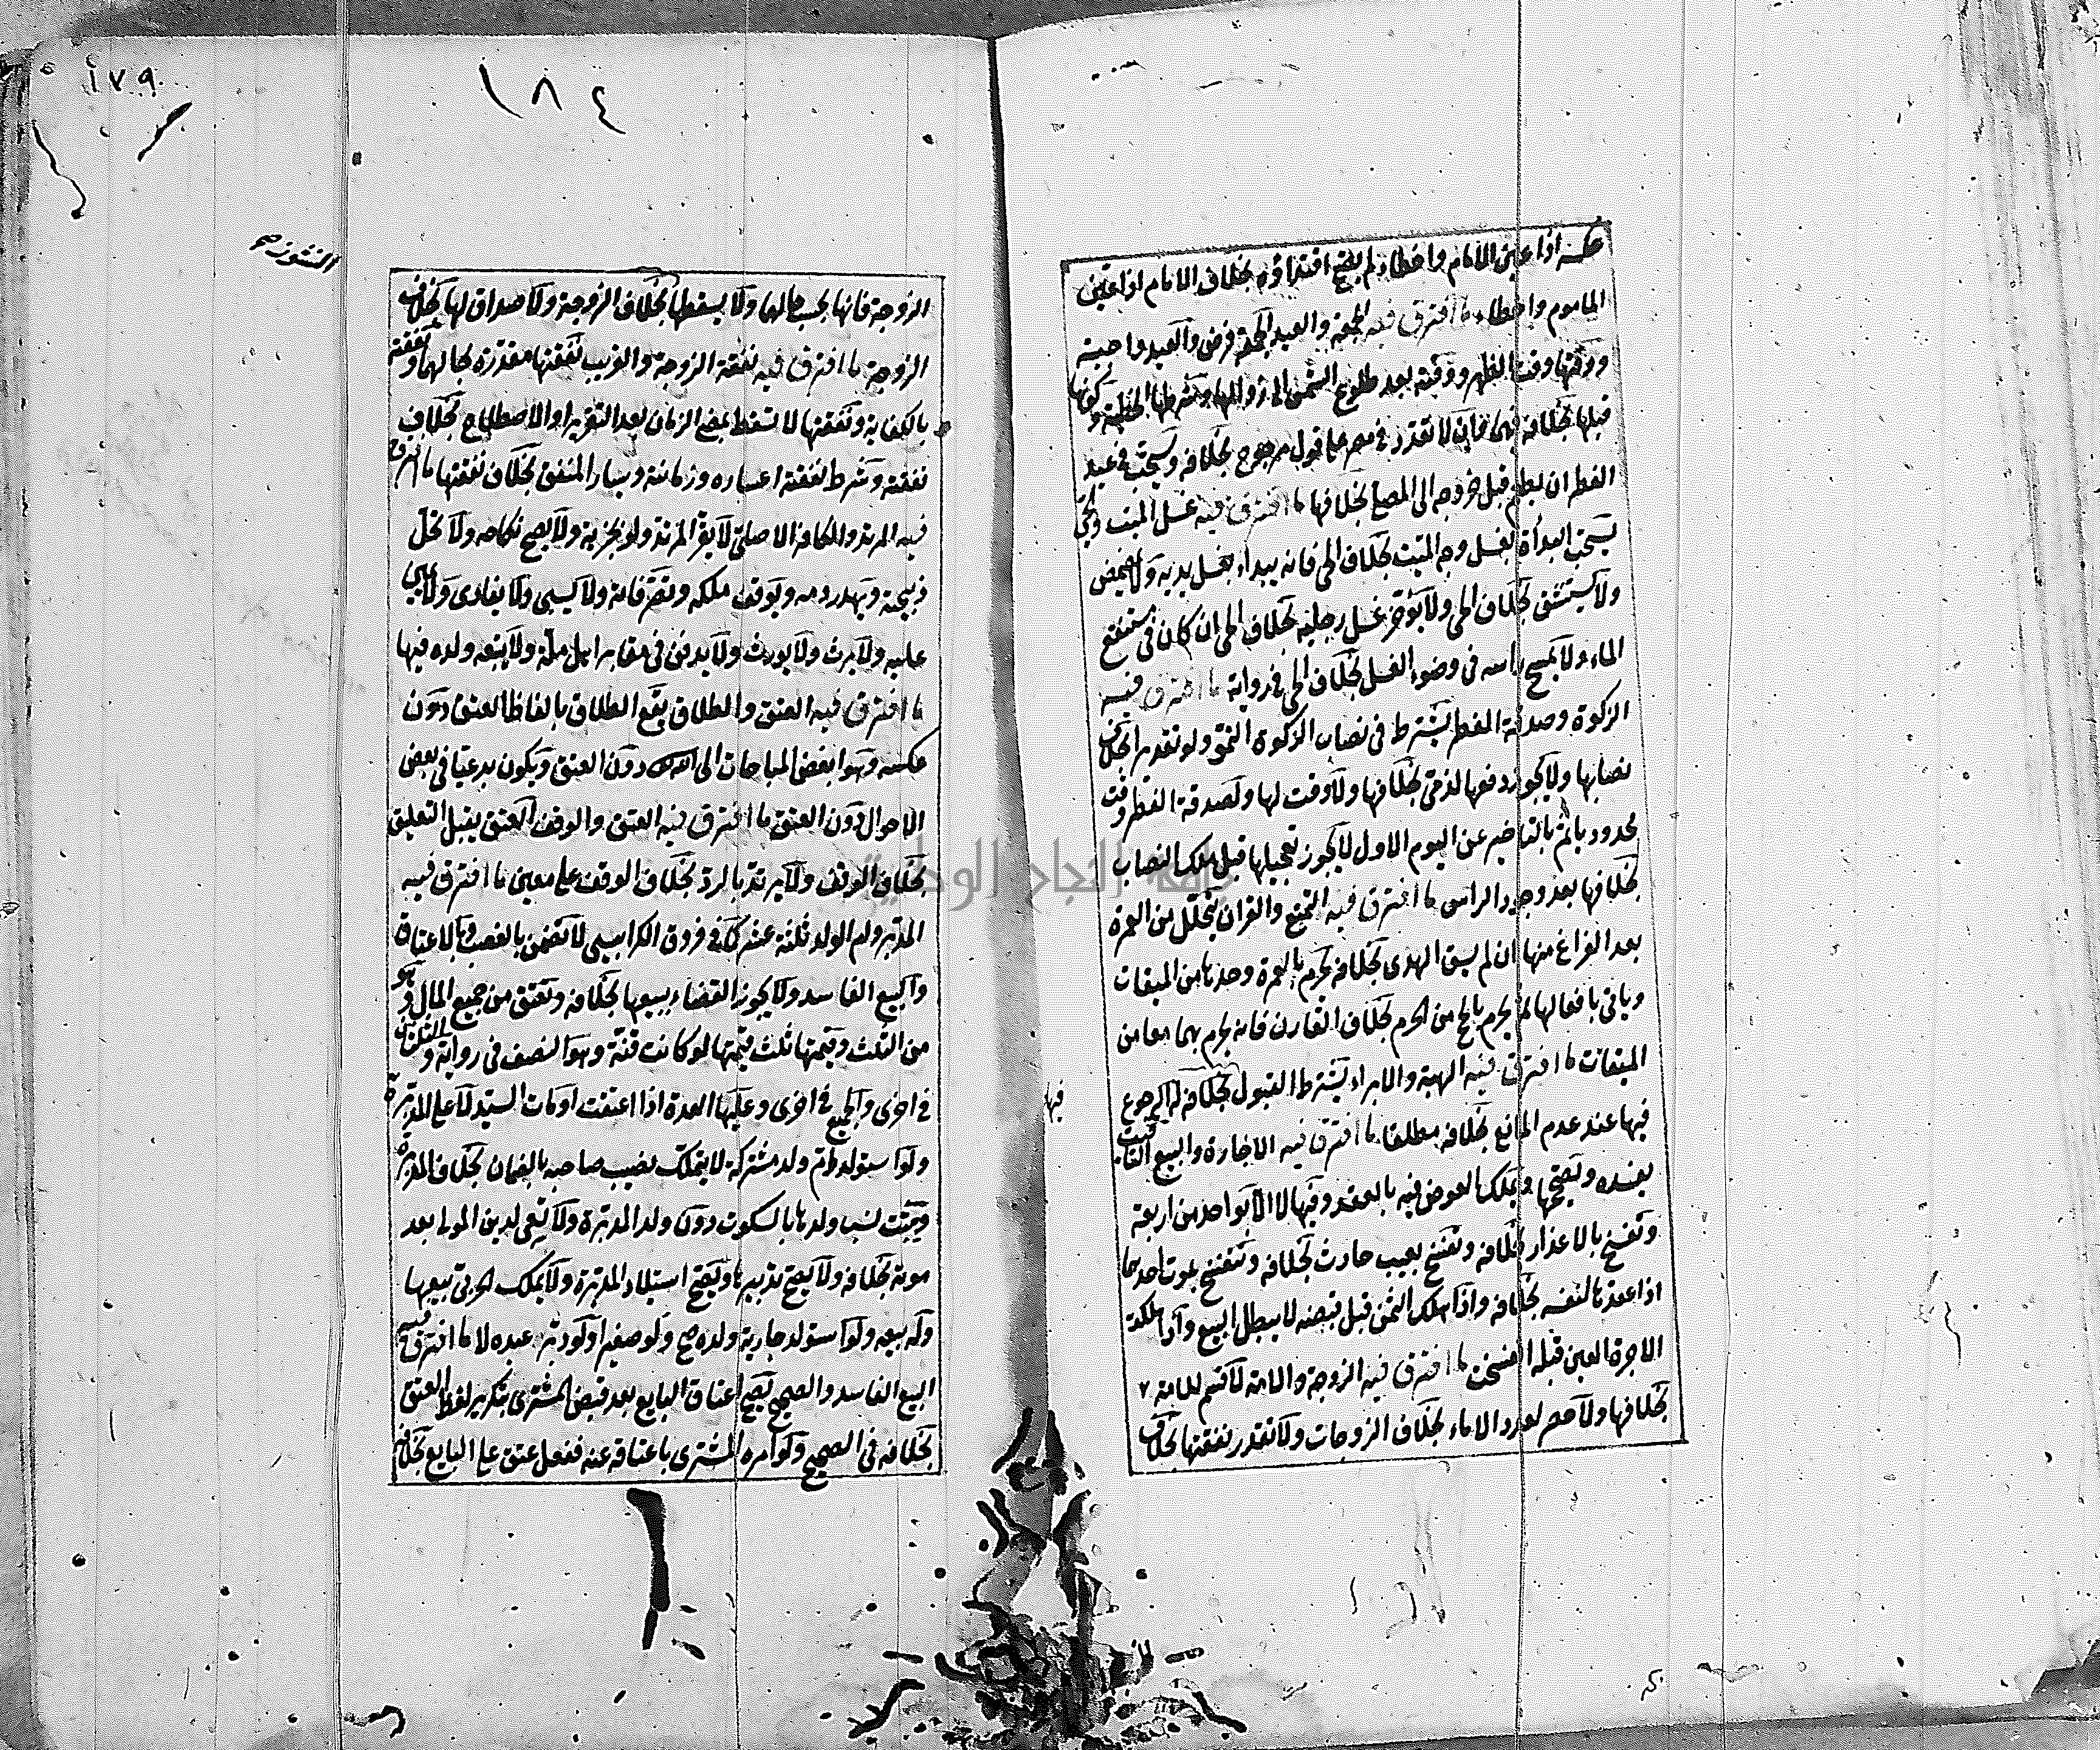 عكسه اذا عين الامام واخطاء لم يصح اقتداؤه بخلاف الامام اذا عين
الماموم واخطاء ما افترق فيه الجمعة والعيد الجمعة فرض والعيد واجبة
ووقتها وقت الظهر ووقته بعد طلوع الشمس الى زوالها وشرطها الخطبة وكونها
قبلها بخلافه فيهما وان لا تتعدد في مصر على قول مرجوح بخلافه ويستحب في عيد
الفطر ان يطعم قبل خروجه الى المصلى بخلافها ما افترق فيه غسل الميت والحي
يستحب البدأة بغسل وجه الميت بخلاف الحي فانه يبداء بغسل يديه ولا يمضمض
ولا يستنشق بخلاف الحي ولا يؤخر غسل رجليه بخلاف الحي ان كان في مستنقع
الماء ولا يمسح راسه في وضوء الغسل بخلاف الحي في رواية ما افترق فيه
الزكوة وصدقة الفطر يشترط في نصاب الزكوة النمو ولو تقديرا بخلاف
نصابها ولا يجوز دفعها لذمي بخلافها ولا وقت لها ولصدقة الفطر وقت
محدود ياثم بالتاخير عن اليوم الاول لا يجوز تعجيلها قبل ملك النصاب
بخلافها بعد وجود الراس ما افترق فيه التمتع والقران يتحلل من العمرة
بعد الفراغ منها ان لم يسق الهدى بخلافه يحرم بالعمرة وحدها من الميقات
وياتي بافعالها ثم يحرم بالحج من الحرم بخلاف القارن فانه يحرم بهما معا من
الميقات ما افترق فيه الهبة والابراء يشترط القبول بخلافه له الرجوع
فيها عند عدم المانع بخلافه مطلقا ما افترق فيه الاجارة والبيع التاقيت
يفسده ويصححها ويملك العوض فيه بالعقد وفيها لا الا بواحد من اربعة
وتفسخ بالاعذار بخلافه وتفسخ بعيب حادث بخلافه وتنفسخ بموت احدهما
اذا عقدها لنفسه بخلافه واذا هلك الثمن قبل قبضه لا يبطل البيع واذا هلكت
الاجرة العين قبله انفسخت ما افترق فيه الزوجة والامة لا قسم للامة
بخلافها ولا حصر لعدد الاماء بخلاف الزوجات ولا تقدر نفقتها بخلاف
فيها
١٧٩
١٨٤
النشوز صح
الزوجة فانها بحسب حالهما ولا يسقطها بخلاف الزوجة ولا صداق لها بخلاف
الزوجة ما افترق فيه نفقة الزوجة والقريب نفقتها مقدرة بحالهما ونفقته
بالكفاية ونفقتها لا تسقط بمضي الزمان بعد التقرير او الاصطلاح بخلاف
نفقته وشرط نفقته اعساره وزمانته ويسار المنفق بخلاف نفقتها ما افترق
فيه المرتد والكافر الاصلي لا يقر المرتد ولو بجزية ولا يصح نكاحه ولا تحل
ذبيحته ويهدر دمه ويوقف ملكه وتصرفاته ولا يسبى ولا يفادى ولا يمن
عليه ولا يرث ولا يورث ولا يدفن في مقابر اهل ملة ولا يتبعه ولده فيها
ما افترق فيه العتق والطلاق يقع الطلاق بالفاظ العتق دون
عكسه وهو ابغض المباحات الى الله دون العتق ويكون بدعيا في بعض
الاحوال دون العتق ما افترق فيه العتق والوقف العتق يقبل التعليق
بخلاف الوقف ولا يرتد بالرد بخلاف الوقف على معين ما افترق فيه
المدبر وام الولد ثلثة عشر كما في فروق الكرابيسي لا تضمن بالغصب وبالاعتاق
والبيع الفاسد ولا يجوز القضاء ببيعها بخلافه وتعتق من جميع المال وهو
من الثلث وقيمتها ثلث قيمتها لو كانت قنة وهو النصف في رواية والثلثان
في اخرى والجميع في اخرى وعليها العدة اذا اعتقت او مات السيد لا على المدبرة
ولو استولد ام ولد مشتركة لا يتملك نصيب صاحبه بالضمان بخلاف المدبرة
ويثبت نسب ولدها بالسكوت دون ولد المدبرة ولا تسعى لدين المولى بعد
موته بخلافه ولا يصح تدبيرها ويصح استيلاد المدبرة ولا يملك الحربي بيعها
وله بيعه ولو استولد جارية ولده صح ولو صغيرا ولو دبر عبده لا ما افترق فيه
البيع الفاسد والصحيح يصح اعتاق البايع بعد قبض المشترى بتكرير لفظ العتق
بخلافه في الصحيح ولو امره المشترى باعتاقه عنه ففعل عتق على البايع بخلافه